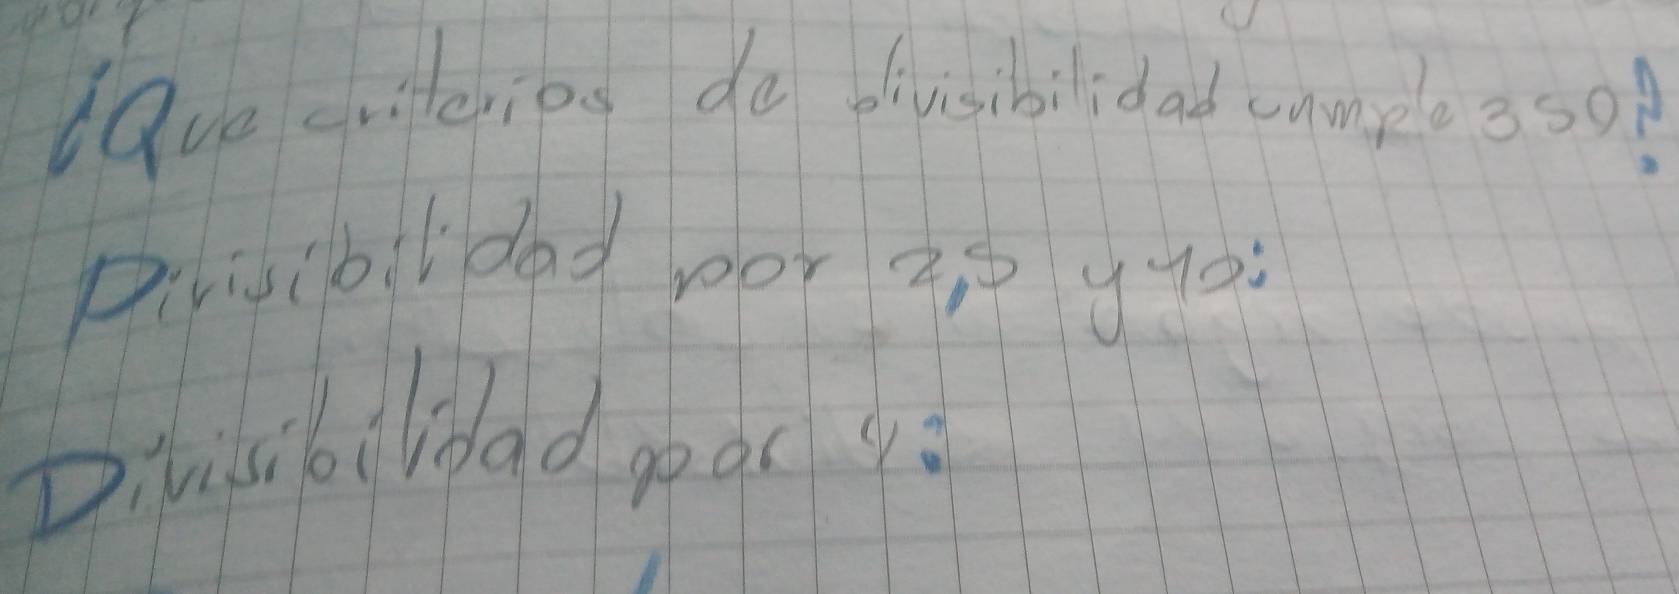 ¿Que criterios de divisibilidad cumple 350?
Divisibilidad por 2,5 y 10:
Divisibilidad por 4: